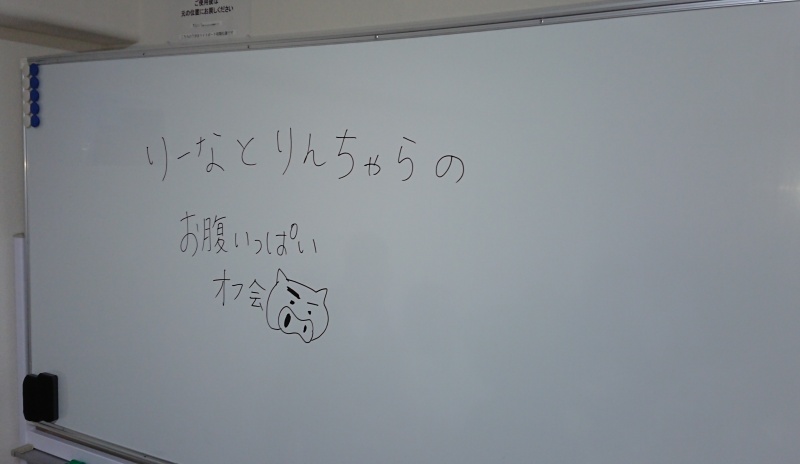 ご使用後は
元の位置にお戻しください
りーなとりんちゃらの
お腹いっぱい
オフ会